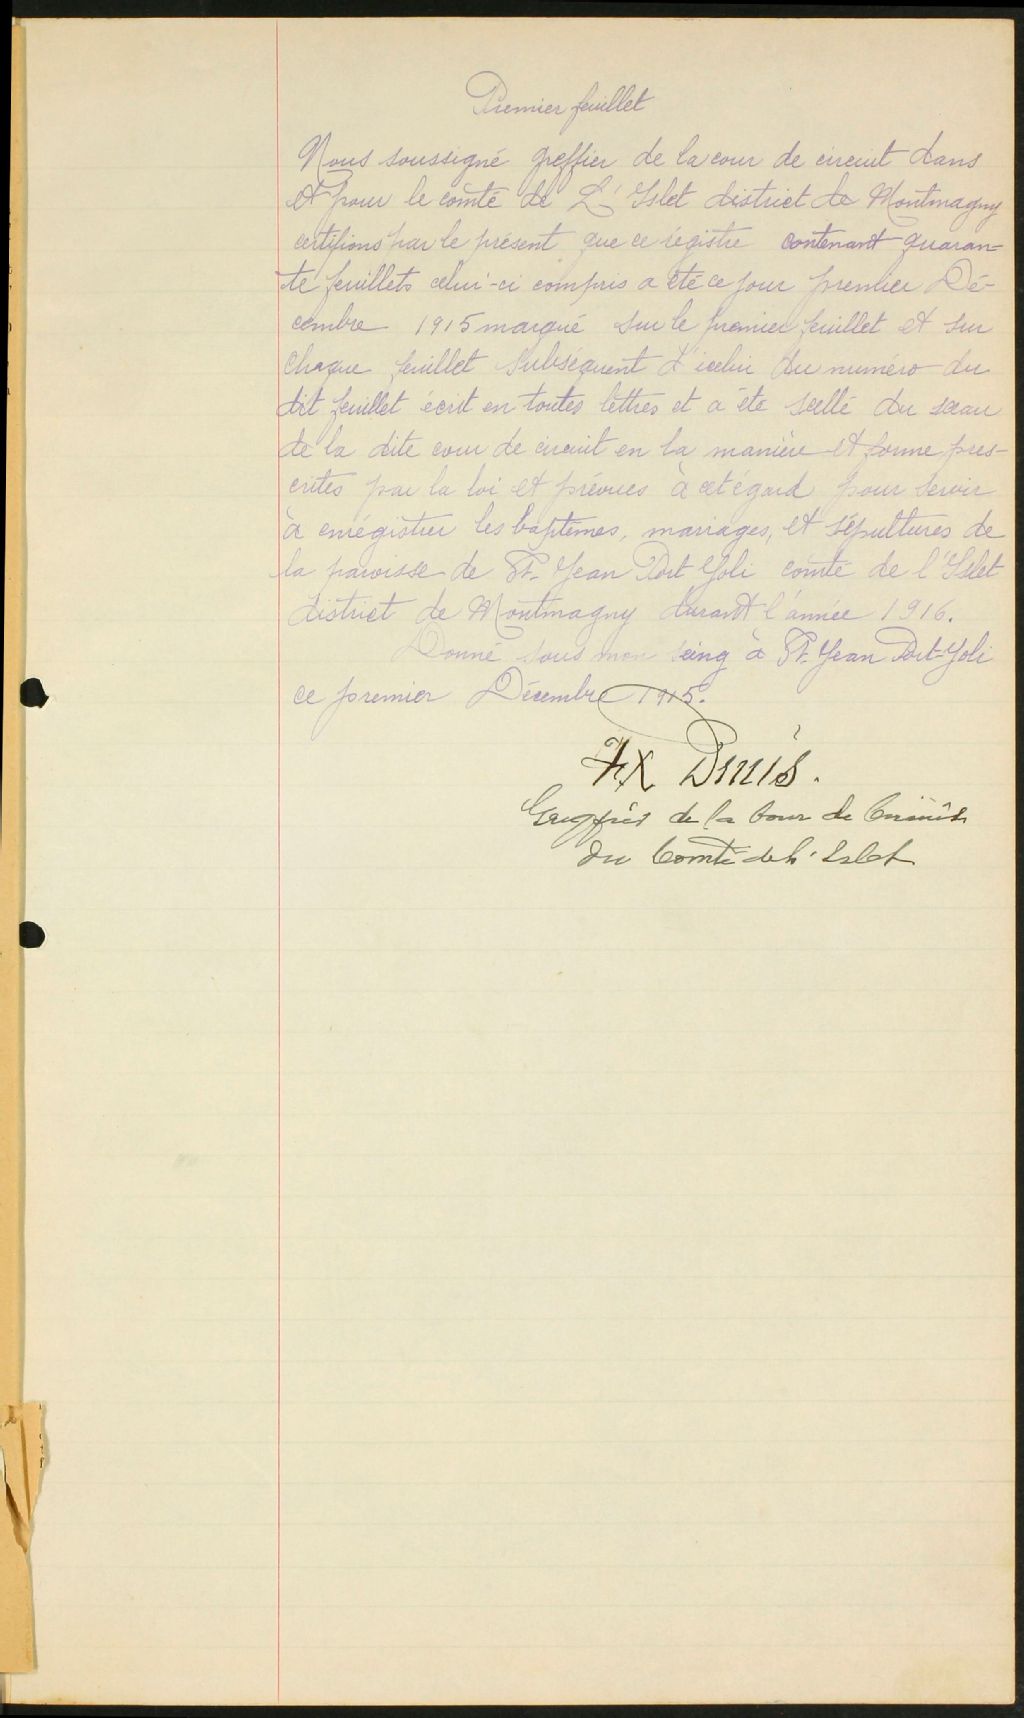 Premier feuillet
Nous soussigné greffier de la cour de circuit dans
et pour le comté de L'Islet district de Montmagny
certifions par le présent que ce régistre contenant quaran-
te feuillets celui-ci compris a été ce jour premier Dé-
cembre 1915 marqué sur le premier feuillet et sur
chaque feuillet subséquent d'icelui du numéro du
dit feuillet écrit en toutes lettres et a été scellé du sceau
de la dite cour de circuit en la manière et forme pres-
crites par la loi et prévues à cet égard pour servir
à enrégistrer les baptêmes, mariages, et sépultures de
la paroisse de St. Jean Port Joli comté de l'Islet
district de Montmagny durant l'année 1916.
Donné sous mon seing à St. Jean Port-Joli
ce premier Décembre 1915.
FX
de la Cour de Circuit
du Comté de L'Islet